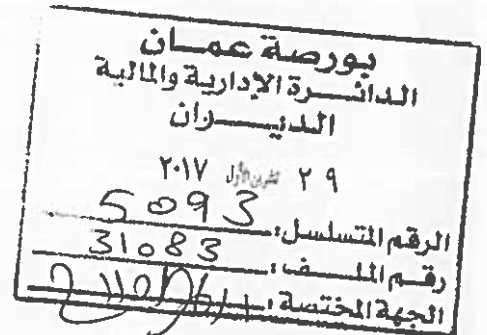 بورصة عمان
الدائرة الإدارية والمالية
الديوان
٢٩ تشرين الأول ٢٠١٧
الرقم المتسلسل: 5093
رقم الملف: 31083
الجهة المختصة: